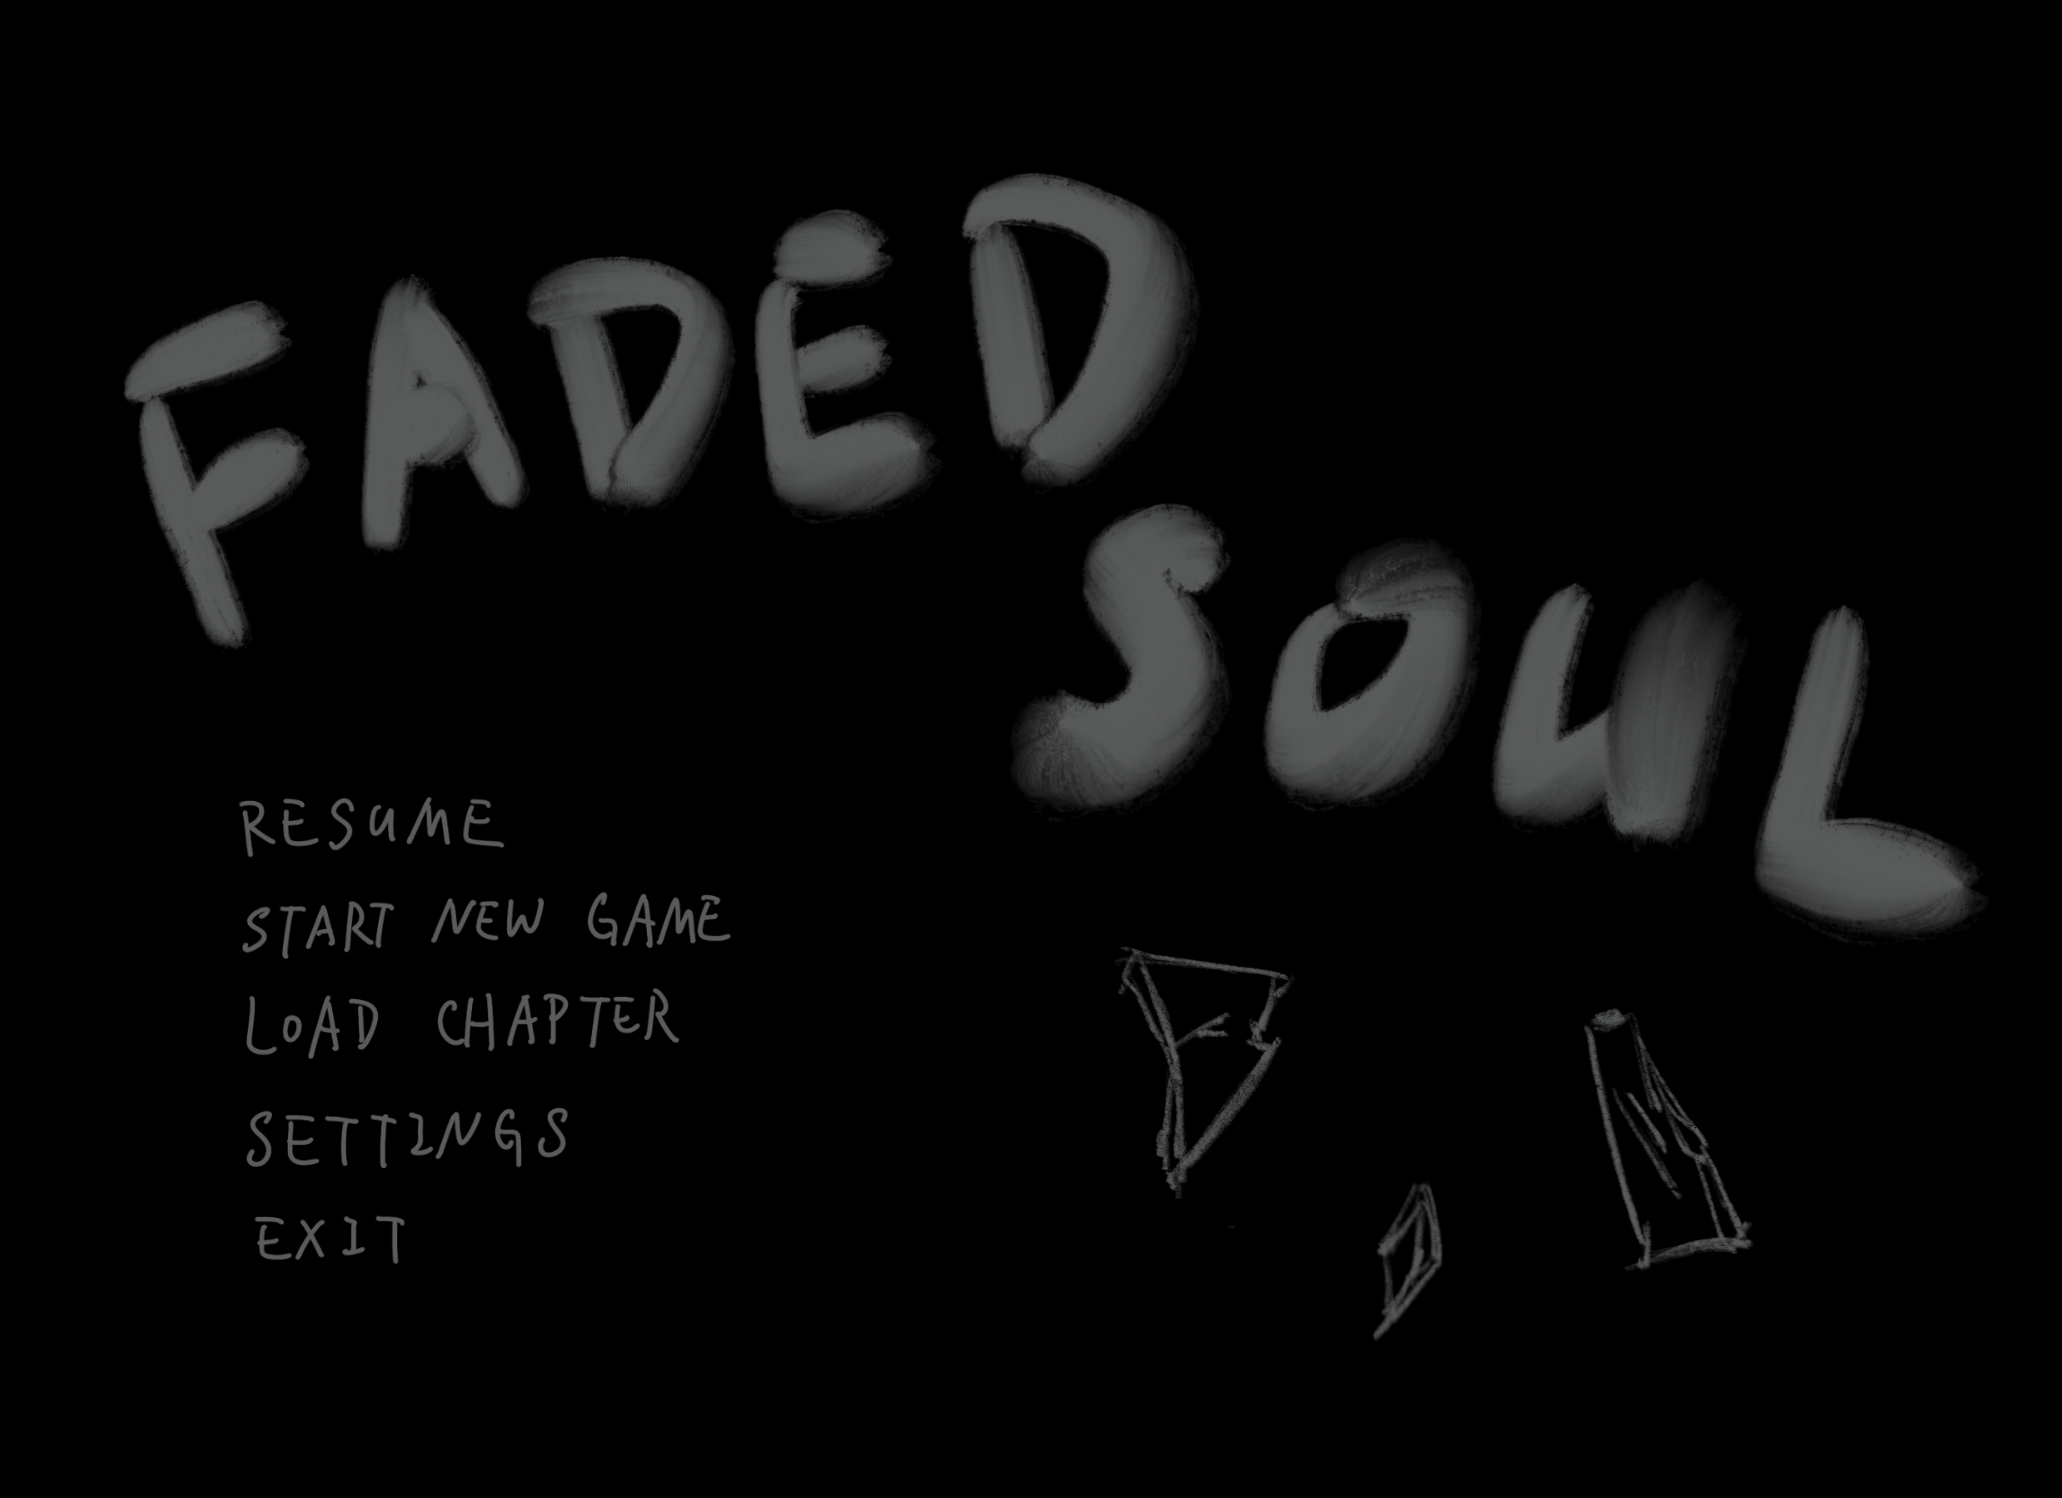 FADED
SOUL
RESUME
START NEW GAME
LOAD CHAPTER
SETTINGS
EXIT